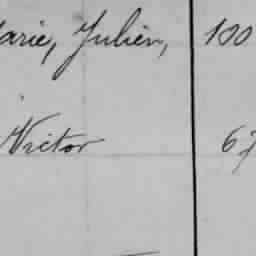 arie, Julien, 100
Victor 67